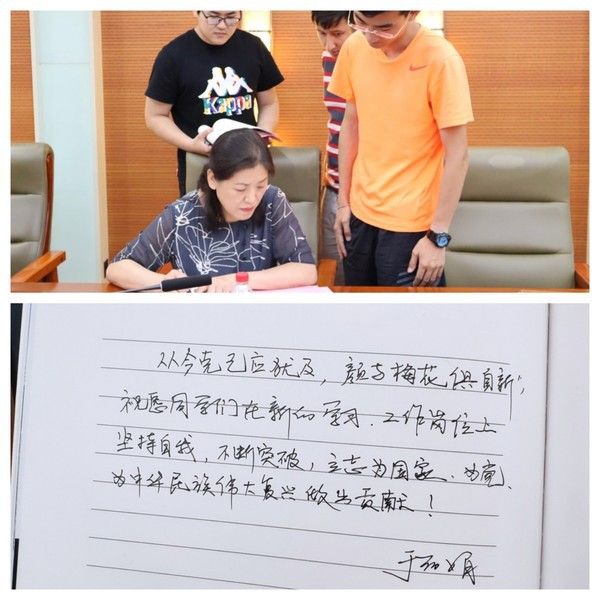 Kappa
从今克己应犹及，颜与梅花俱自新”，
祝愿同学们在新的学习、工作岗位上
坚持自我，不断突破，立志为国家、为党、
为中华民族伟大复兴做出贡献！